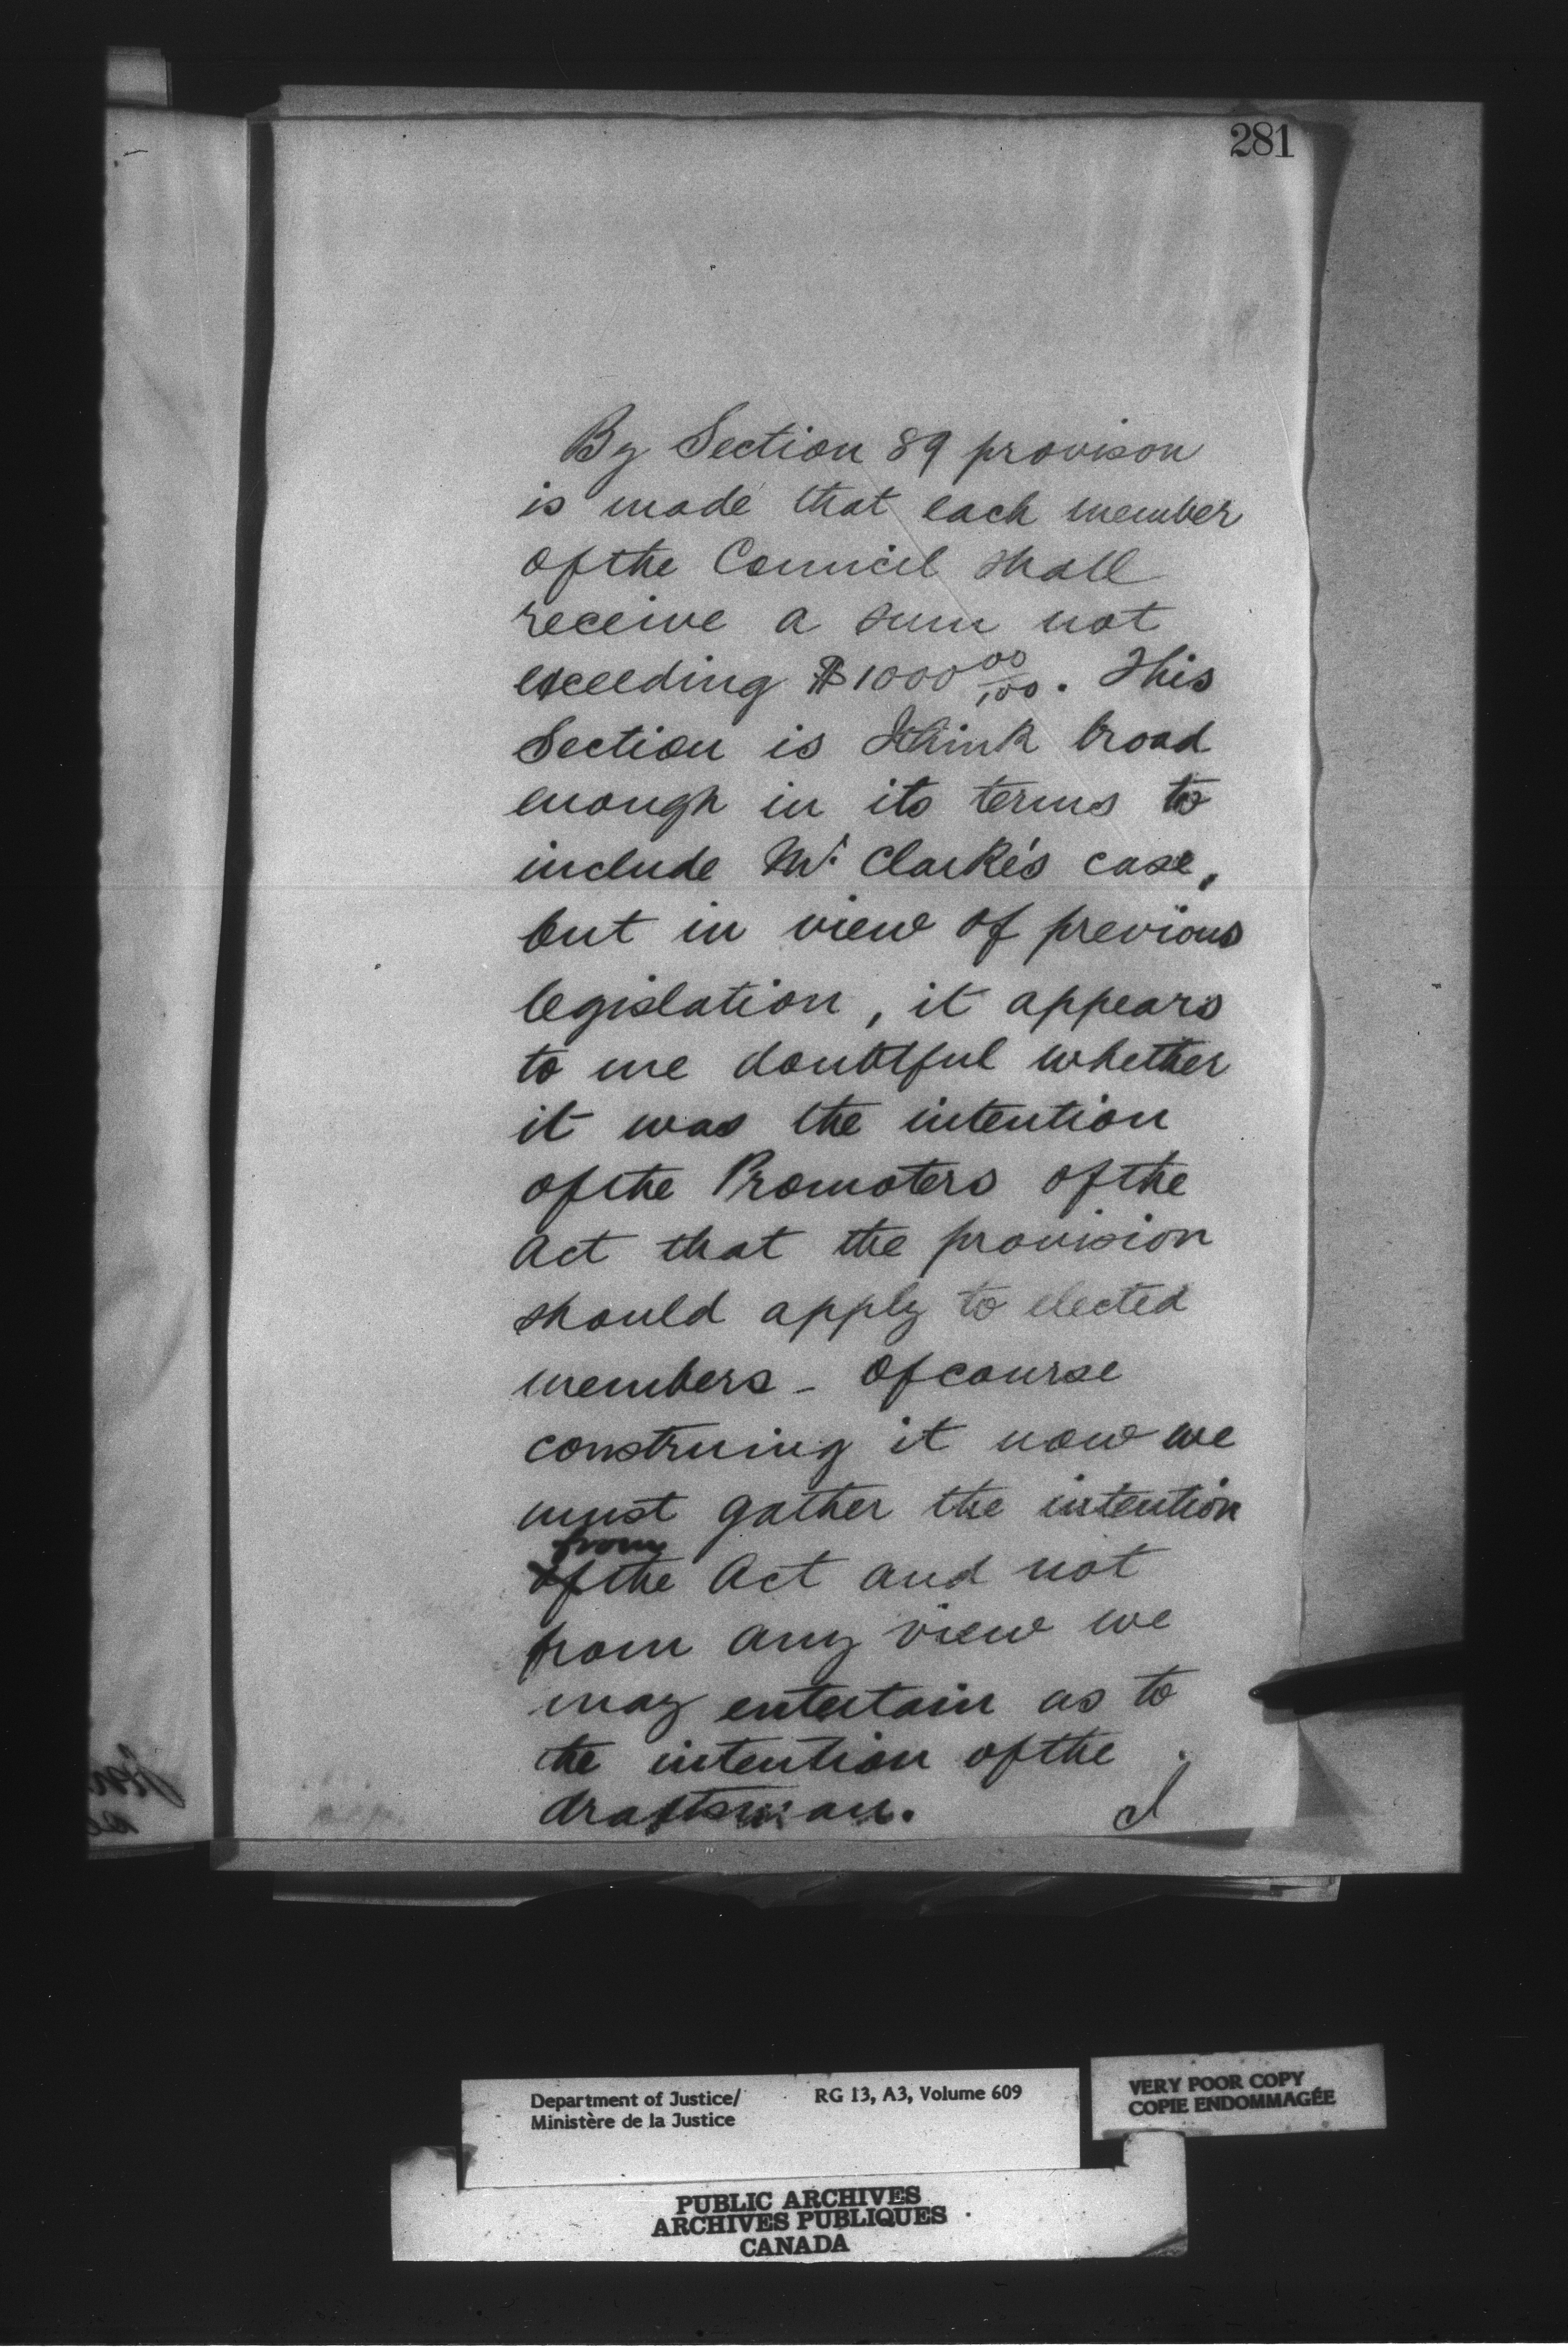 281
By Section 89 provison
is made that each member
of the Council shall
receive a sum not
exceeding $1000 00/100. This
Section is I think broad
enough in its terms to
include Mr. Clarke's case,
but in view of previous
legislation, it appears
to me doubtful whether
it was the intention
of the Promoters of the
Act that the provision
should apply to elected
members - Of course
construing it now we
must gather the intention
from
of the Act and not
from any view we
may entertain as to
the intention of the
draftsman.
Department of Justice/ RG 13, A3, Volume 609
Ministère de la Justice
VERY POOR COPY
COPIE ENDOMMAGÉE
PUBLIC ARCHIVES
ARCHIVES PUBLIQUES
CANADA